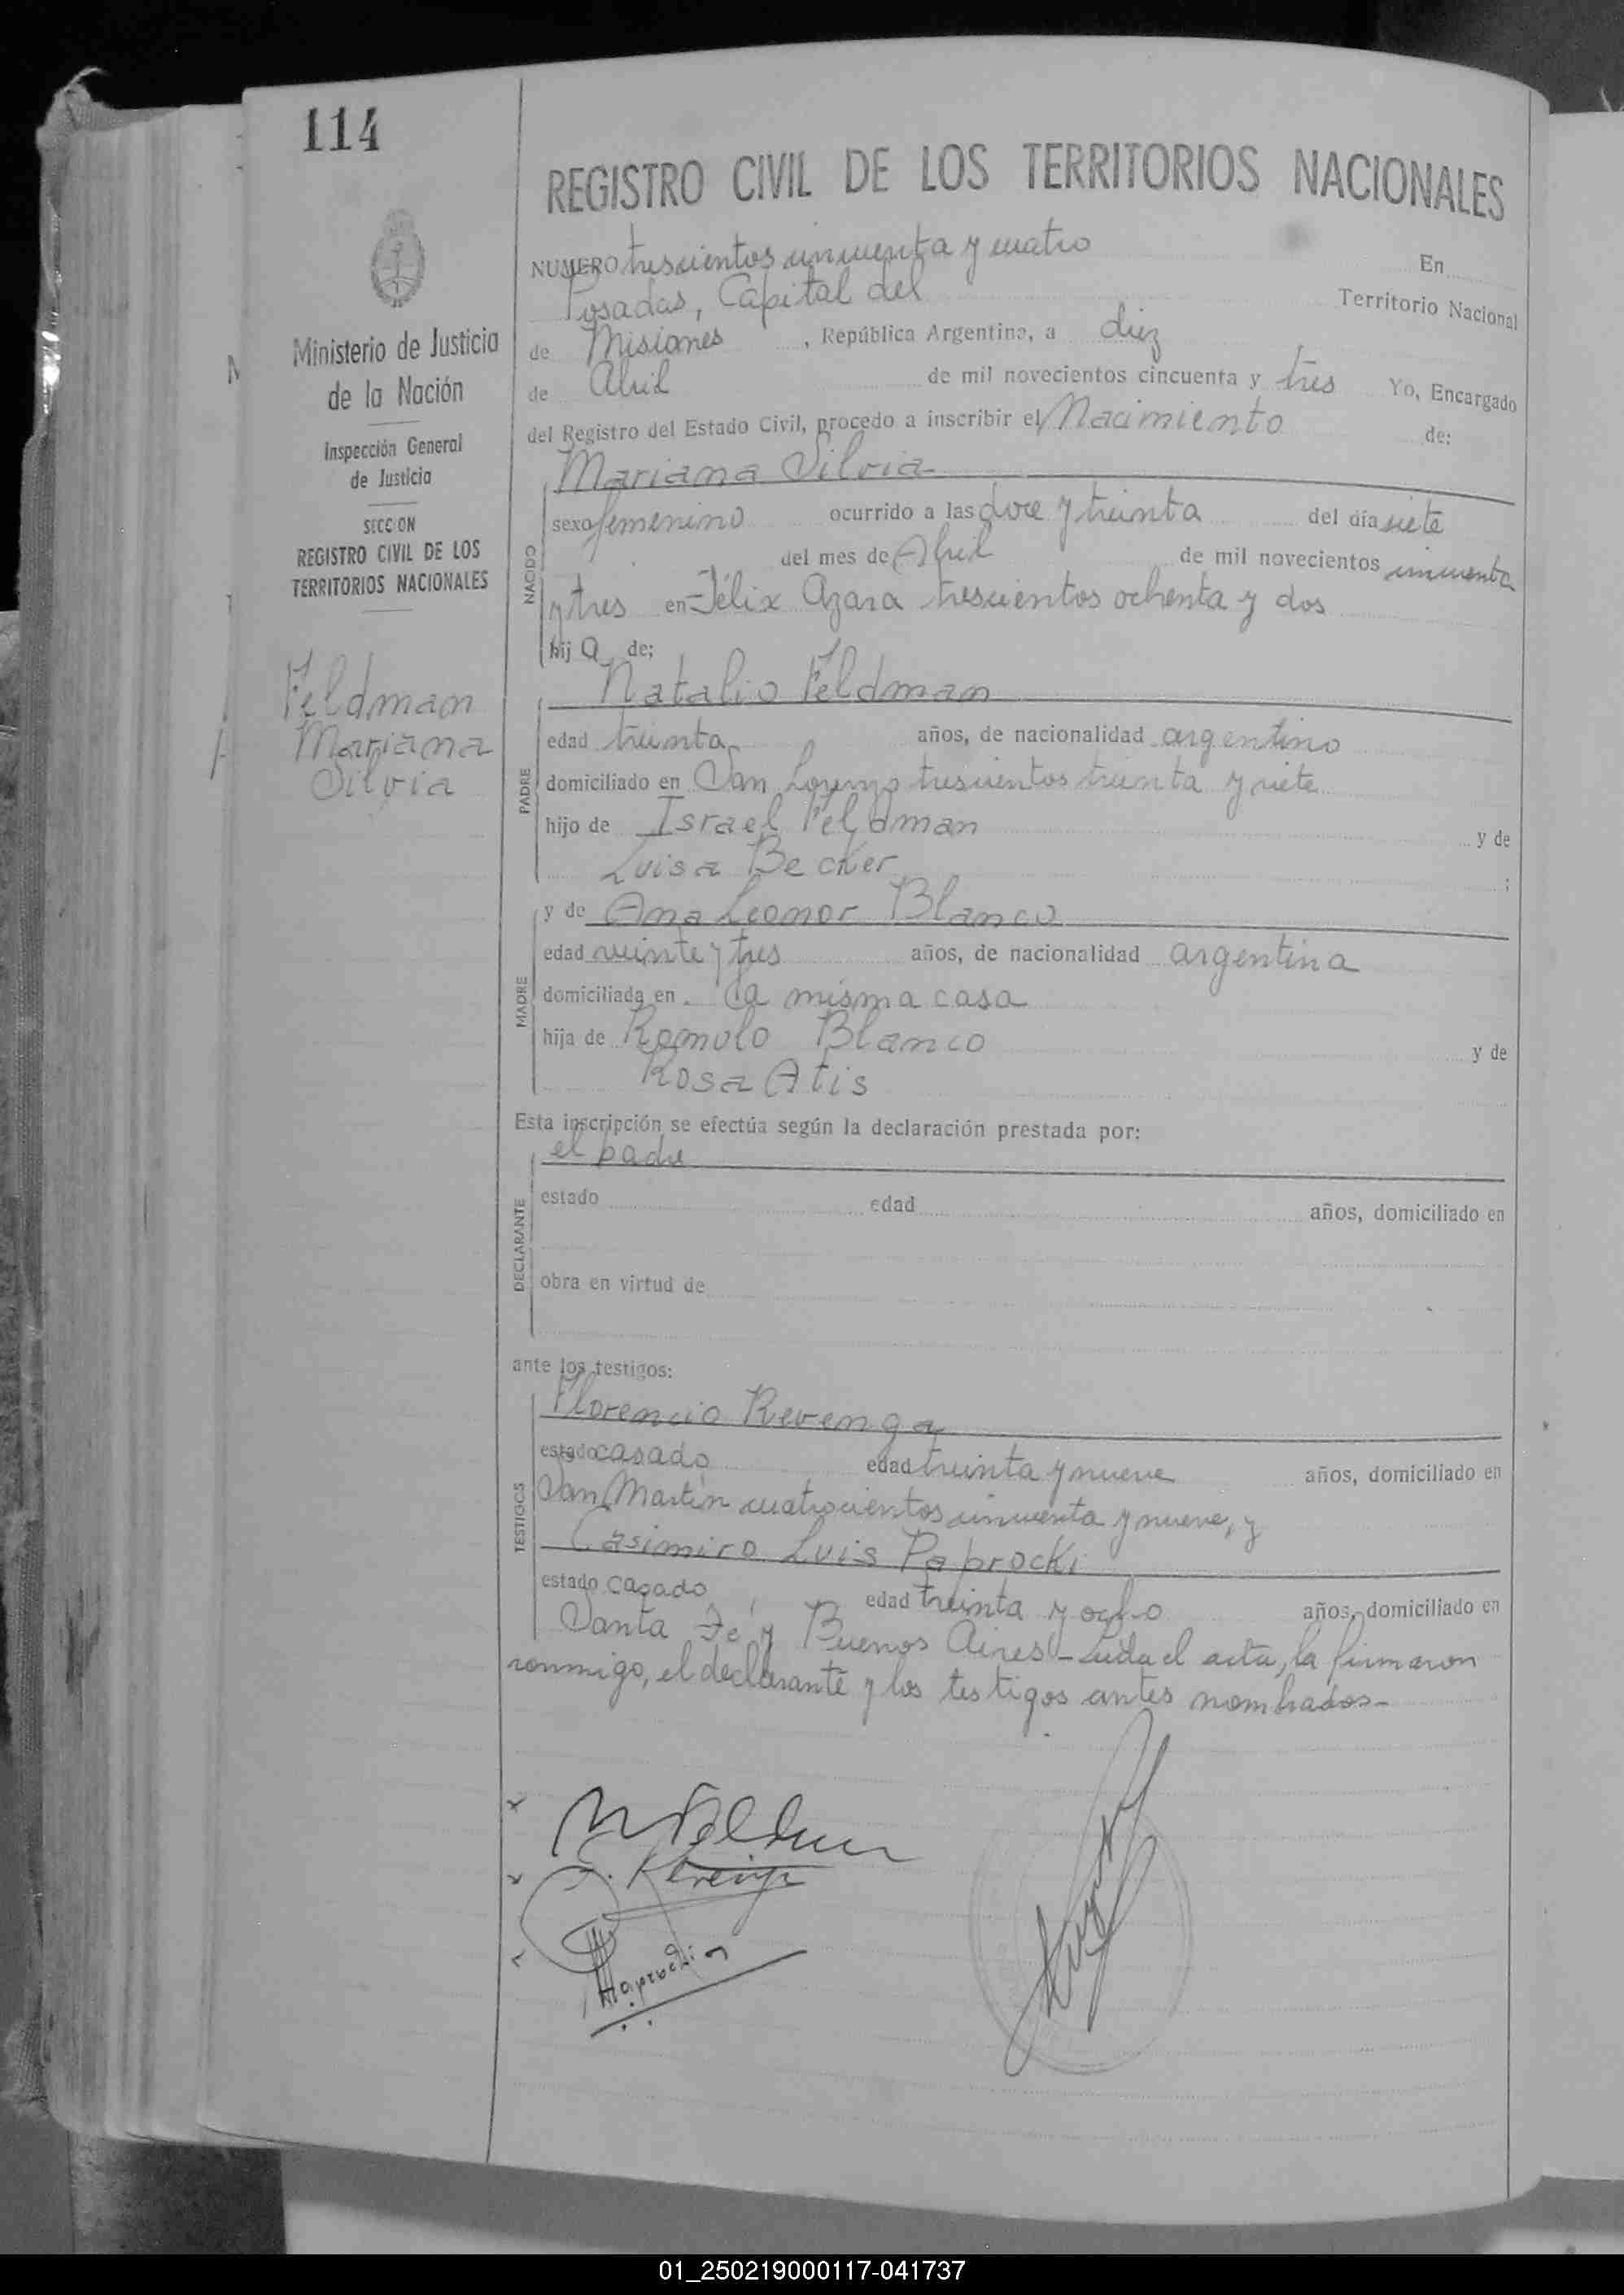 114
REGISTRO CIVIL DE LOS TERRITORIOS NACIONALES
NUMERO trescientos cincuenta y cuatro En
Posadas, Capital del Territorio Nacional
de Misiones, República Argentina, a diez
de Abril de mil novecientos cincuenta y tres Yo, Encargado
del Registro del Estado Civil, procedo a inscribir el Nacimiento de:
Mariana Silvia
sexo femenino ocurrido a las doce y treinta del día siete
del mes de Abril de mil novecientos cincuenta
y tres en Félix Azara trescientos ochenta y dos
hija de:
NACIDO
Natalio Feldman
edad treinta años, de nacionalidad argentino
domiciliado en San Lorenzo trescientos treinta y siete
hijo de Israel Feldman y de
Luisa Becker ;
PADRE
y de Ana Leonor Blanco
edad veinte y tres años, de nacionalidad argentina
domiciliada en la misma casa
hija de Romulo Blanco y de
Rosa Atis
MADRE
Esta inscripción se efectúa según la declaración prestada por:
el padre
estado edad años, domiciliado en
obra en virtud de
DECLARANTE
ante los testigos:
Florencio Revenga
estado casado edad treinta y nueve años, domiciliado en
San Martín cuatrocientos cincuenta y nueve, y
Casimiro Luis Paprocki
estado casado, edad treinta y ocho años, domiciliado en
Santa Fé y Buenos Aires - Leida el acta, la firmaron
conmigo, el declarante y los testigos antes nombrados-
TESTIGOS
Ministerio de Justicia
de la Nación
Inspección General
de Justicia
SECCION
REGISTRO CIVIL DE LOS
TERRITORIOS NACIONALES
Feldman
Mariana
Silvia
N Feldman
01_250219000117-041737